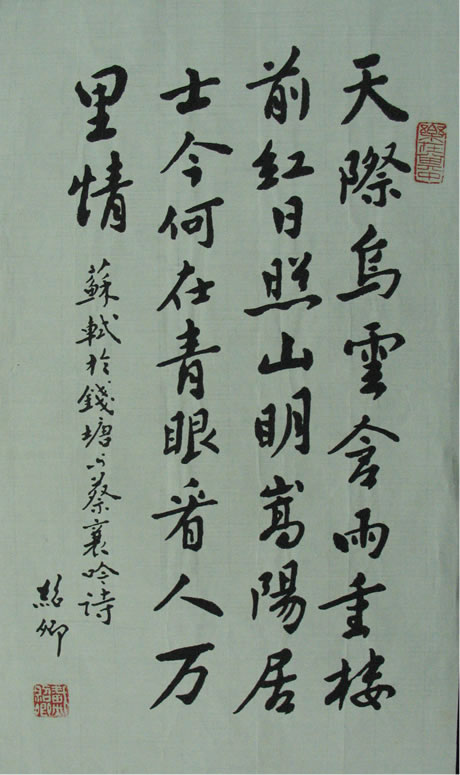 樂在其中
天際烏雲含雨重楼
前紅日照山明嵩陽居
士今何在青眼看人万
里情
蘇軾於錢塘与蔡襄吟詩
紹卿